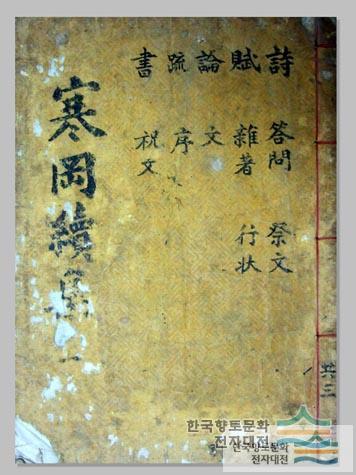 詩 答問 祭文
賦 雜著 行狀
論 文
疏 序
書 祝文
寒岡續集 上
共三
한국향토문화
전자대전
한국향토문화
전자대전